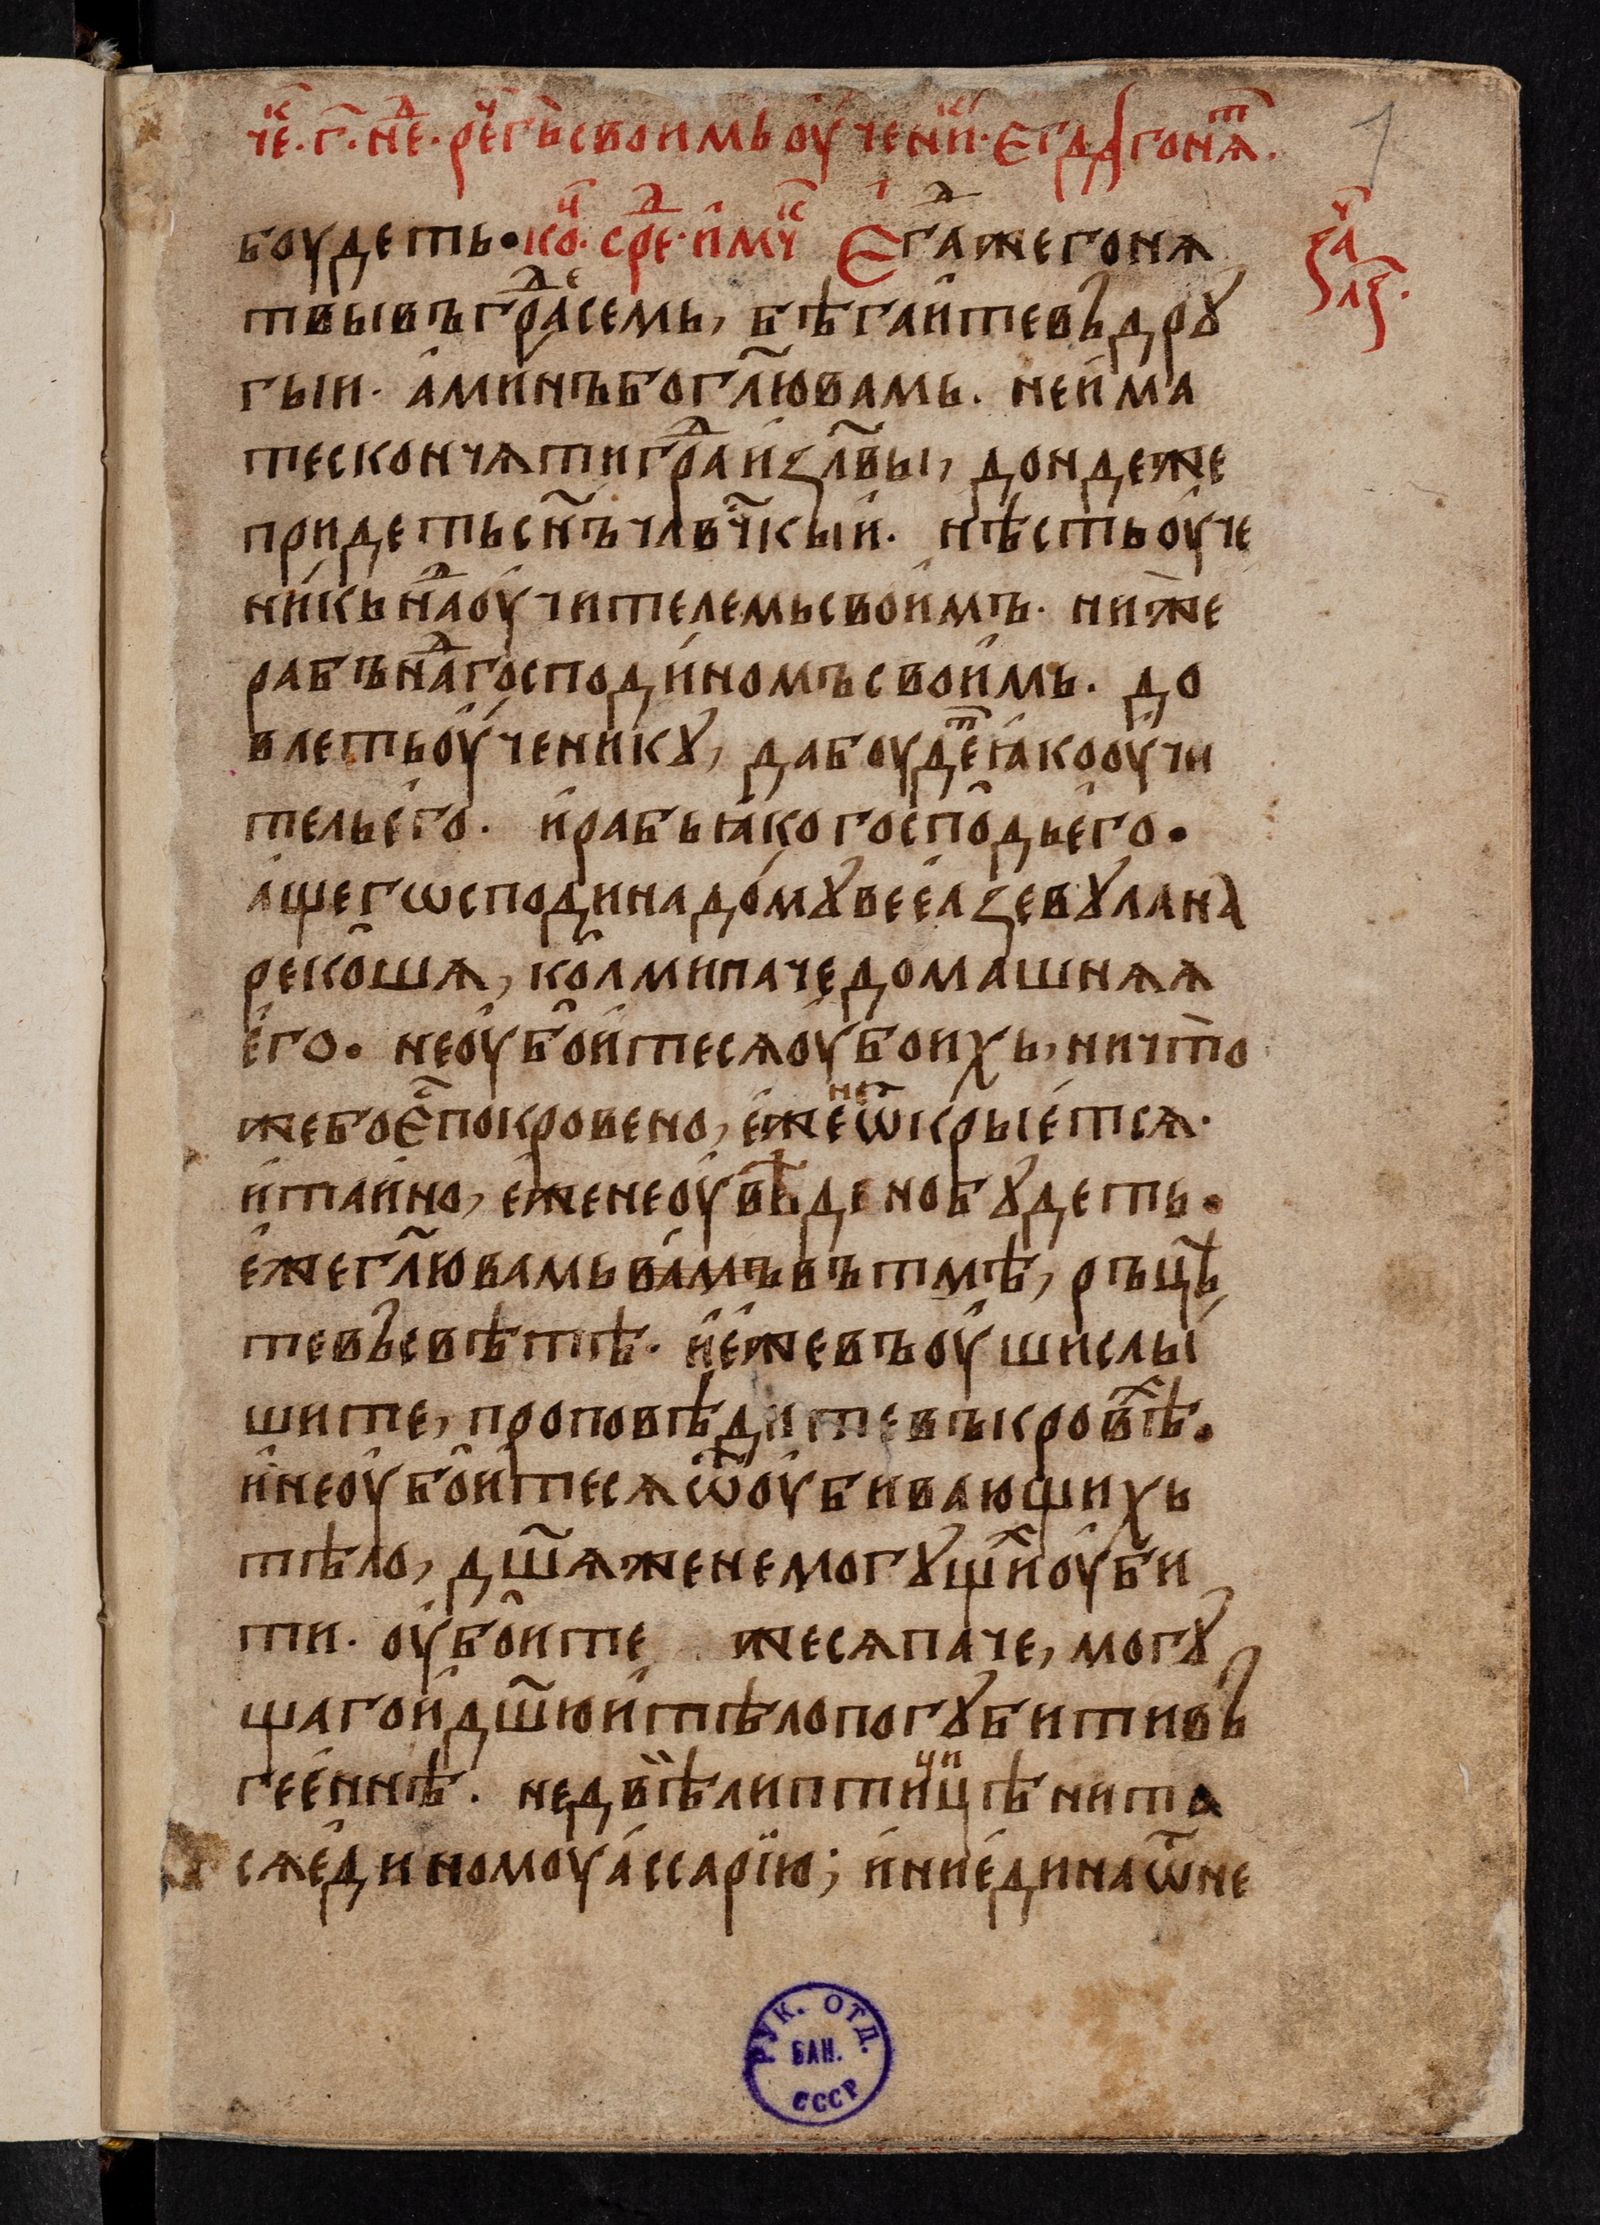 че҃к. г҃. нед҃. реч҇ гь своимь оучени҇к. Егда гоня҇т.
боудеть• ко҇ц. сре҇д. и му҇ч Ега҇д же гоня
зач҇а
л҃ѕ.
ть вы въ гра҇де семь, бѣгаите въ дрꙋ
гыи. аминъ бо гл҃ю вамь. не има
те скончяти гра҇д и҆зл҃вы, дондеже
придеть сн҃ъ члвч҃кыи. нѣсть оуче
никь на҇д оучителемь своимъ. ниже
рабъ на҇д господиномъ своимь. до
влеть оученикꙋ, да боуде҇т ꙗко оучи
тель его. и рабь ꙗко господь его•
аще гѡсподина домꙋ веелзевꙋла на
рекошя, колми паче домашняя
его. не оубоитеся оубо ихь, ничто
же бо е҇с покровено, еже не ѿкрыется.
и таино, еже не оувѣдено бꙋдеть•
еже гл҃ю вамь вамъ въ тмѣ, ръцѣ
те въ свѣтѣ. и еже въ оуши слы
шите, проповѣдите въ кров҇ѣх.
и не оубоитеся ѿ оубивающихь
тѣло, дш҃я же не могꙋщи҇х оуби
ти. оубоите же ся паче, могꙋ
щаго и дш҃ю и тѣло погꙋбити въ
гееннѣ. не двѣ ли птицѣ нита
ся единомоу ассарїю; и ни едина ѿ не
РУК. ОТД.
БАН.
СССР